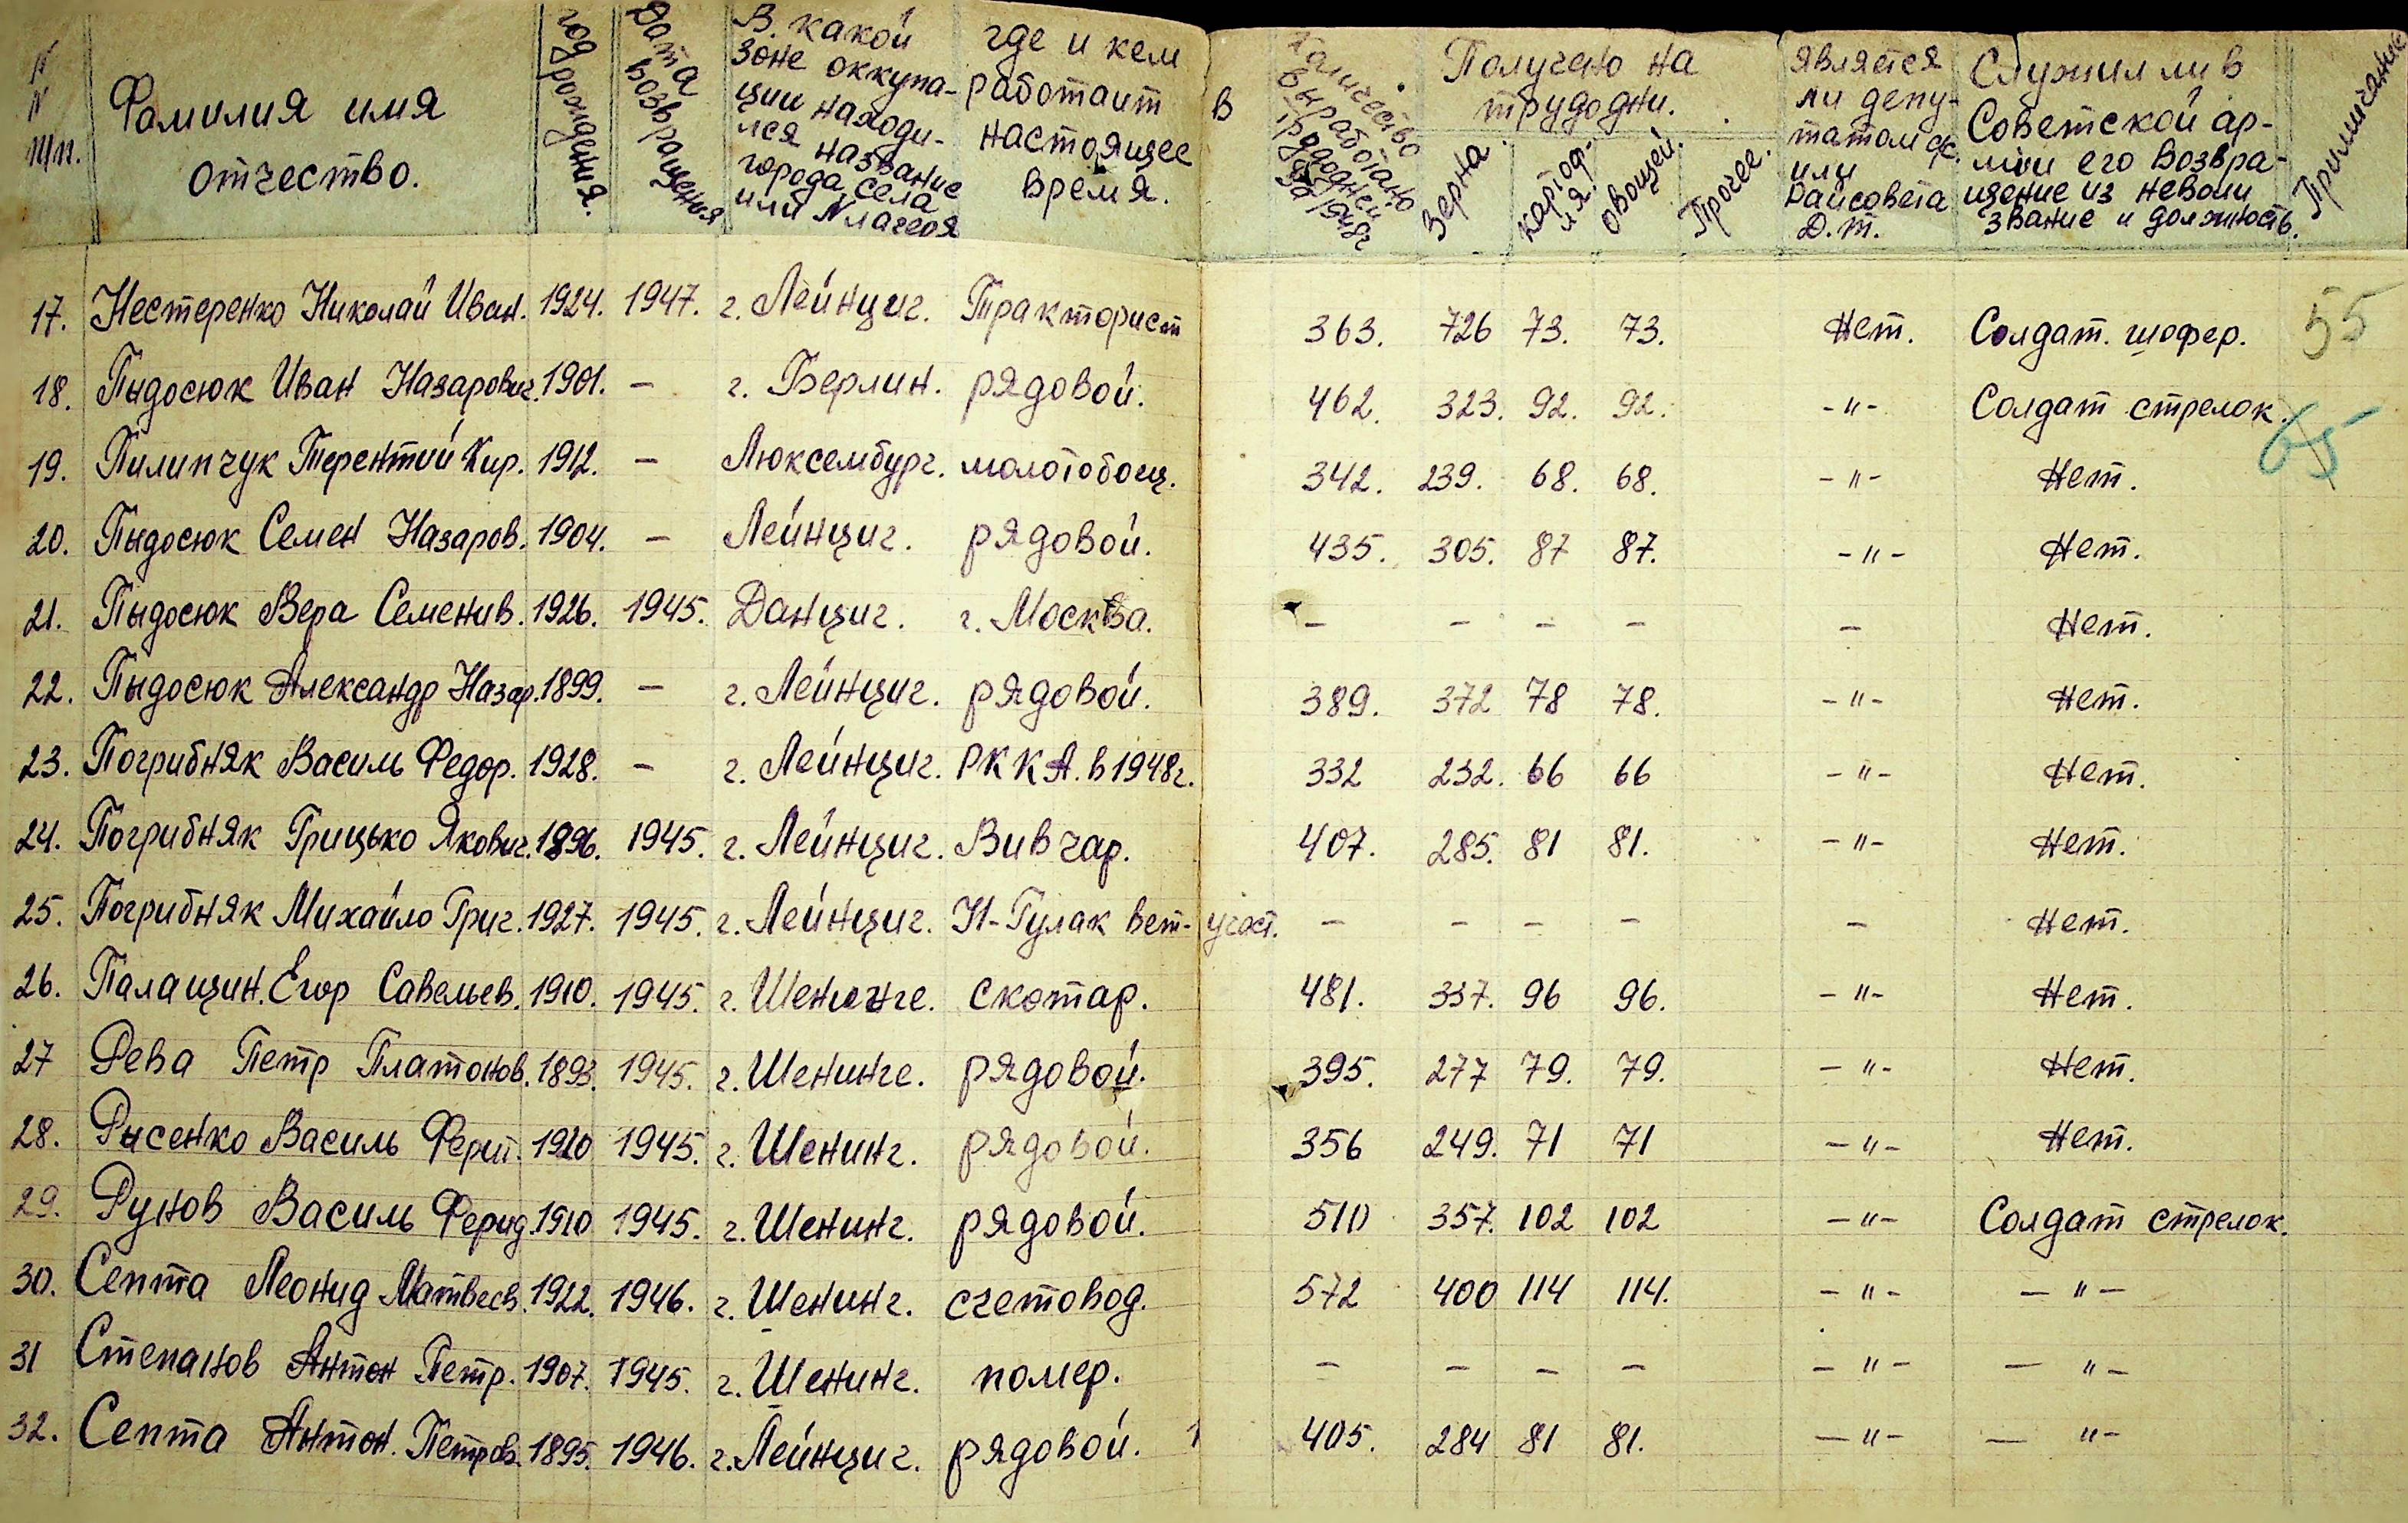 N
N
п/п.
Фамилия имя
отчество.
год рождения.
Дата
возвращения
В какой
зоне оккупа-
ции находи-
лся название
города, села
или N лагеря
где и кем
работает в
настоящее
время.
выработано
трудодней
за 1948г
Получено на
трудодни.
Зерна
картоф-
ля
овощей.
Прочее.
является
ли депу-
татом с/с.
или
Райсовета
Д. т.
Служил ли в
Советской ар-
мии его возвра-
щение из неволи
звание и должность.
Примечание
17. Нестеренко Николай Иван. 1924. 1947. г. Лейпциг. Тракторист 363. 726 73. 73. Нет. Солдат. шофер. 55
18. Пыдосюк Иван Назарович. 1901. — г. Берлин. рядовой. 462. 323. 92. 92. -"- Солдат стрелок.
65
19. Пилипчук Терентий Кир. 1912. — Люксембург. молотобоец. 342. 239. 68. 68. -"- Нет.
20. Пыдосюк Семен Назаров. 1904. — Лейпциг. рядовой. 435. 305. 87 87. -"- Нет.
21. Пыдосюк Вера Семенив. 1926. 1945. Данциг. г. Москва. — — — — — Нет.
22. Пыдосюк Александр Назар. 1899. — г. Лейпциг. рядовой. 389. 372 78 78. -"- Нет.
23. Погрибняк Василь Федор. 1928. — г. Лейпциг. РККА. в 1948г. 332 232. 66 66 -"- Нет.
24. Погрибняк Грицько Якович. 1896. 1945. г. Лейпциг. Вивчар. 407. 285. 81 81. -"- Нет.
25. Погрибняк Михайло Григ. 1927. 1945. г. Лейпциг. Н-Гулак вет-участ. — — — — — Нет.
26. Палащин. Егор Савельев. 1910. 1945. г. Шенинге. скотар. 481. 337. 96 96. -"- Нет.
27 Рева Петр Платонов. 1893. 1945. г. Шенинге. рядовой. 395. 277 79. 79. -"- Нет.
28. Рысенко Василь 1920 1945. г. Шенинг. рядовой. 356 249. 71 71 -"- Нет.
29. Рунов Василь 1910 1945. г. Шенинг. рядовой. 510 357. 102 102 -"- Солдат стрелок.
30. Септа Леонид Матвеев. 1922. 1946. г. Шенинг. счетовод. 572 400 114 114. -"- -"-
31 Степанов Антон Петр. 1907. 1945. г. Шенинг. помер. — — — — -"- -"-
32. Септа Антон. Петров. 1895. 1946. г. Лейпциг. рядовой. 405. 284 81 81. -"- -"-